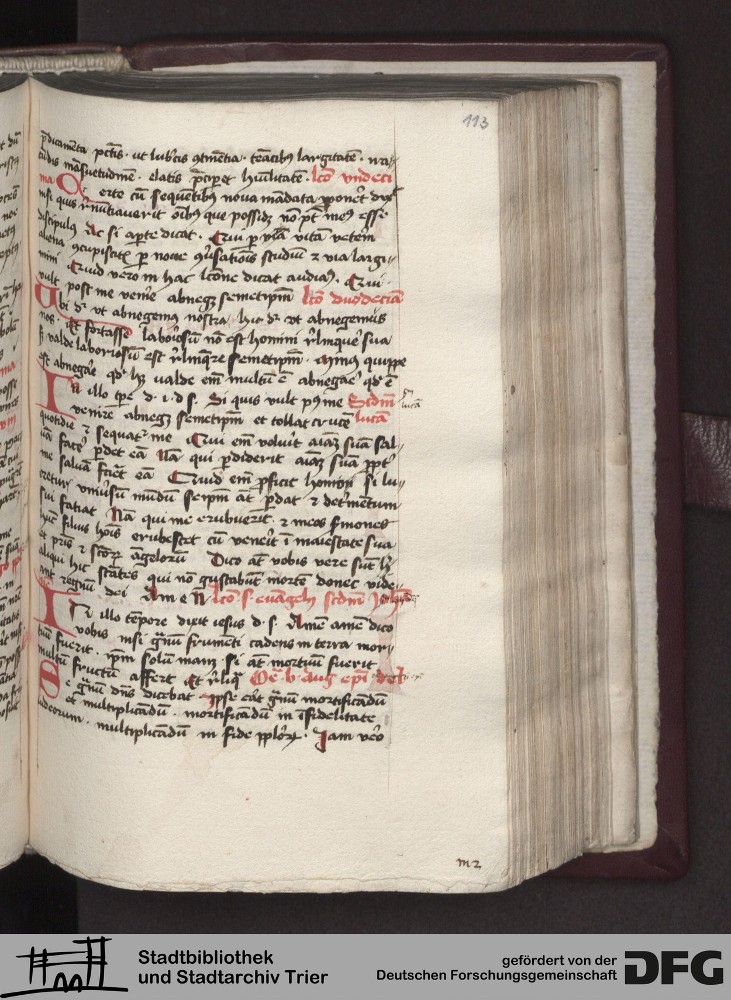 113
p̄dicamēta pctīs · ut lubͥcis ꝯtinētia · tenacibꝫ largitatē · ira
cūdis māsuetudinē · elatis p̄ciperet hūilitatē · lcō vndeci
ma erte cū sequentibꝫ nova mādata pponeret dixͭ
nisi quis rn̄untiaverit oībꝫ que possidꝫ nō pt̄ meꝰ esse
discipulꝰ Ac si aperte dicat · Qui p vitā veterē
aliena ꝯcupiscitꝭ p nove ꝯversatiōis studiū ⁊ vͣa largi
mini Quid vero in hac lcōne dicat audiaꝰ · Qui
vult post me venire abnegꝫ semetipm̄ lcō duodeciā
Ubi dr̄ ut abnegemꝰ nostra · hic dr̄ ut abnegemꝰ
nos · Et fortasse laboriosū nō est homini rl̄inquere sua
sꝫ valde laboriosū est rl̄inqͤre semetipm̄ · Minꝰ quippe
est abnegare qd̓ hꝫ valde em̄ multū ē abnegare qd̓ ē
In illo tꝑe d · i · d s · Si quis vult pꝰ me Scdm̄
venire abnegꝫ semetipm̄ et tollat crucē lucā
quotidie ⁊ sequatꝛ me Qui em̄ voluͥt aīaꝫ suā sal
uā facͤ pdet eā Nā qui pdiderit aīaꝫ suā ppͭ
me saluā faciet eā Quid em̄ pficit homini si lu
cretur vniūsū mūdū seipm̄ āt pdat ⁊ detͥmentum
sui faciat Nā qui me erubuerit ⁊ meos sͥmones
hūc filius hoīs erubescet cū veneͥt ī maiestate sua
et pr̄is ⁊ sc̄oꝝ āgeloruꝫ Dico āt vobis vere sūt
aliqui hic stātes qui nō gustabūt mortē donec vide
ant regnū dei Amen lcō · s · euāgelij scdm̄
In illo tēpore dixit iesus d · s · Amē amē dico
vobis nisi gͣnū frumēti cadens in terra mor
tuū fuerit · ipm̄ solū manꝫ · si āt mortuū fuerit
multū fructū affert Et rlīq Om̄ · b · aug epī
Se gͣnū dn̄s dicebat Ipse eͣt gͣnū mortificādū
et multiplicādū · mortificādū in īfidelitate
iudeorum · multiplicādū in fide pploꝝ · Iam vͦo
m 2
Stadtbibliothek
und Stadtarchiv Trier
gefördert von der
Deutschen Forschungsgemeinschaft
DFG